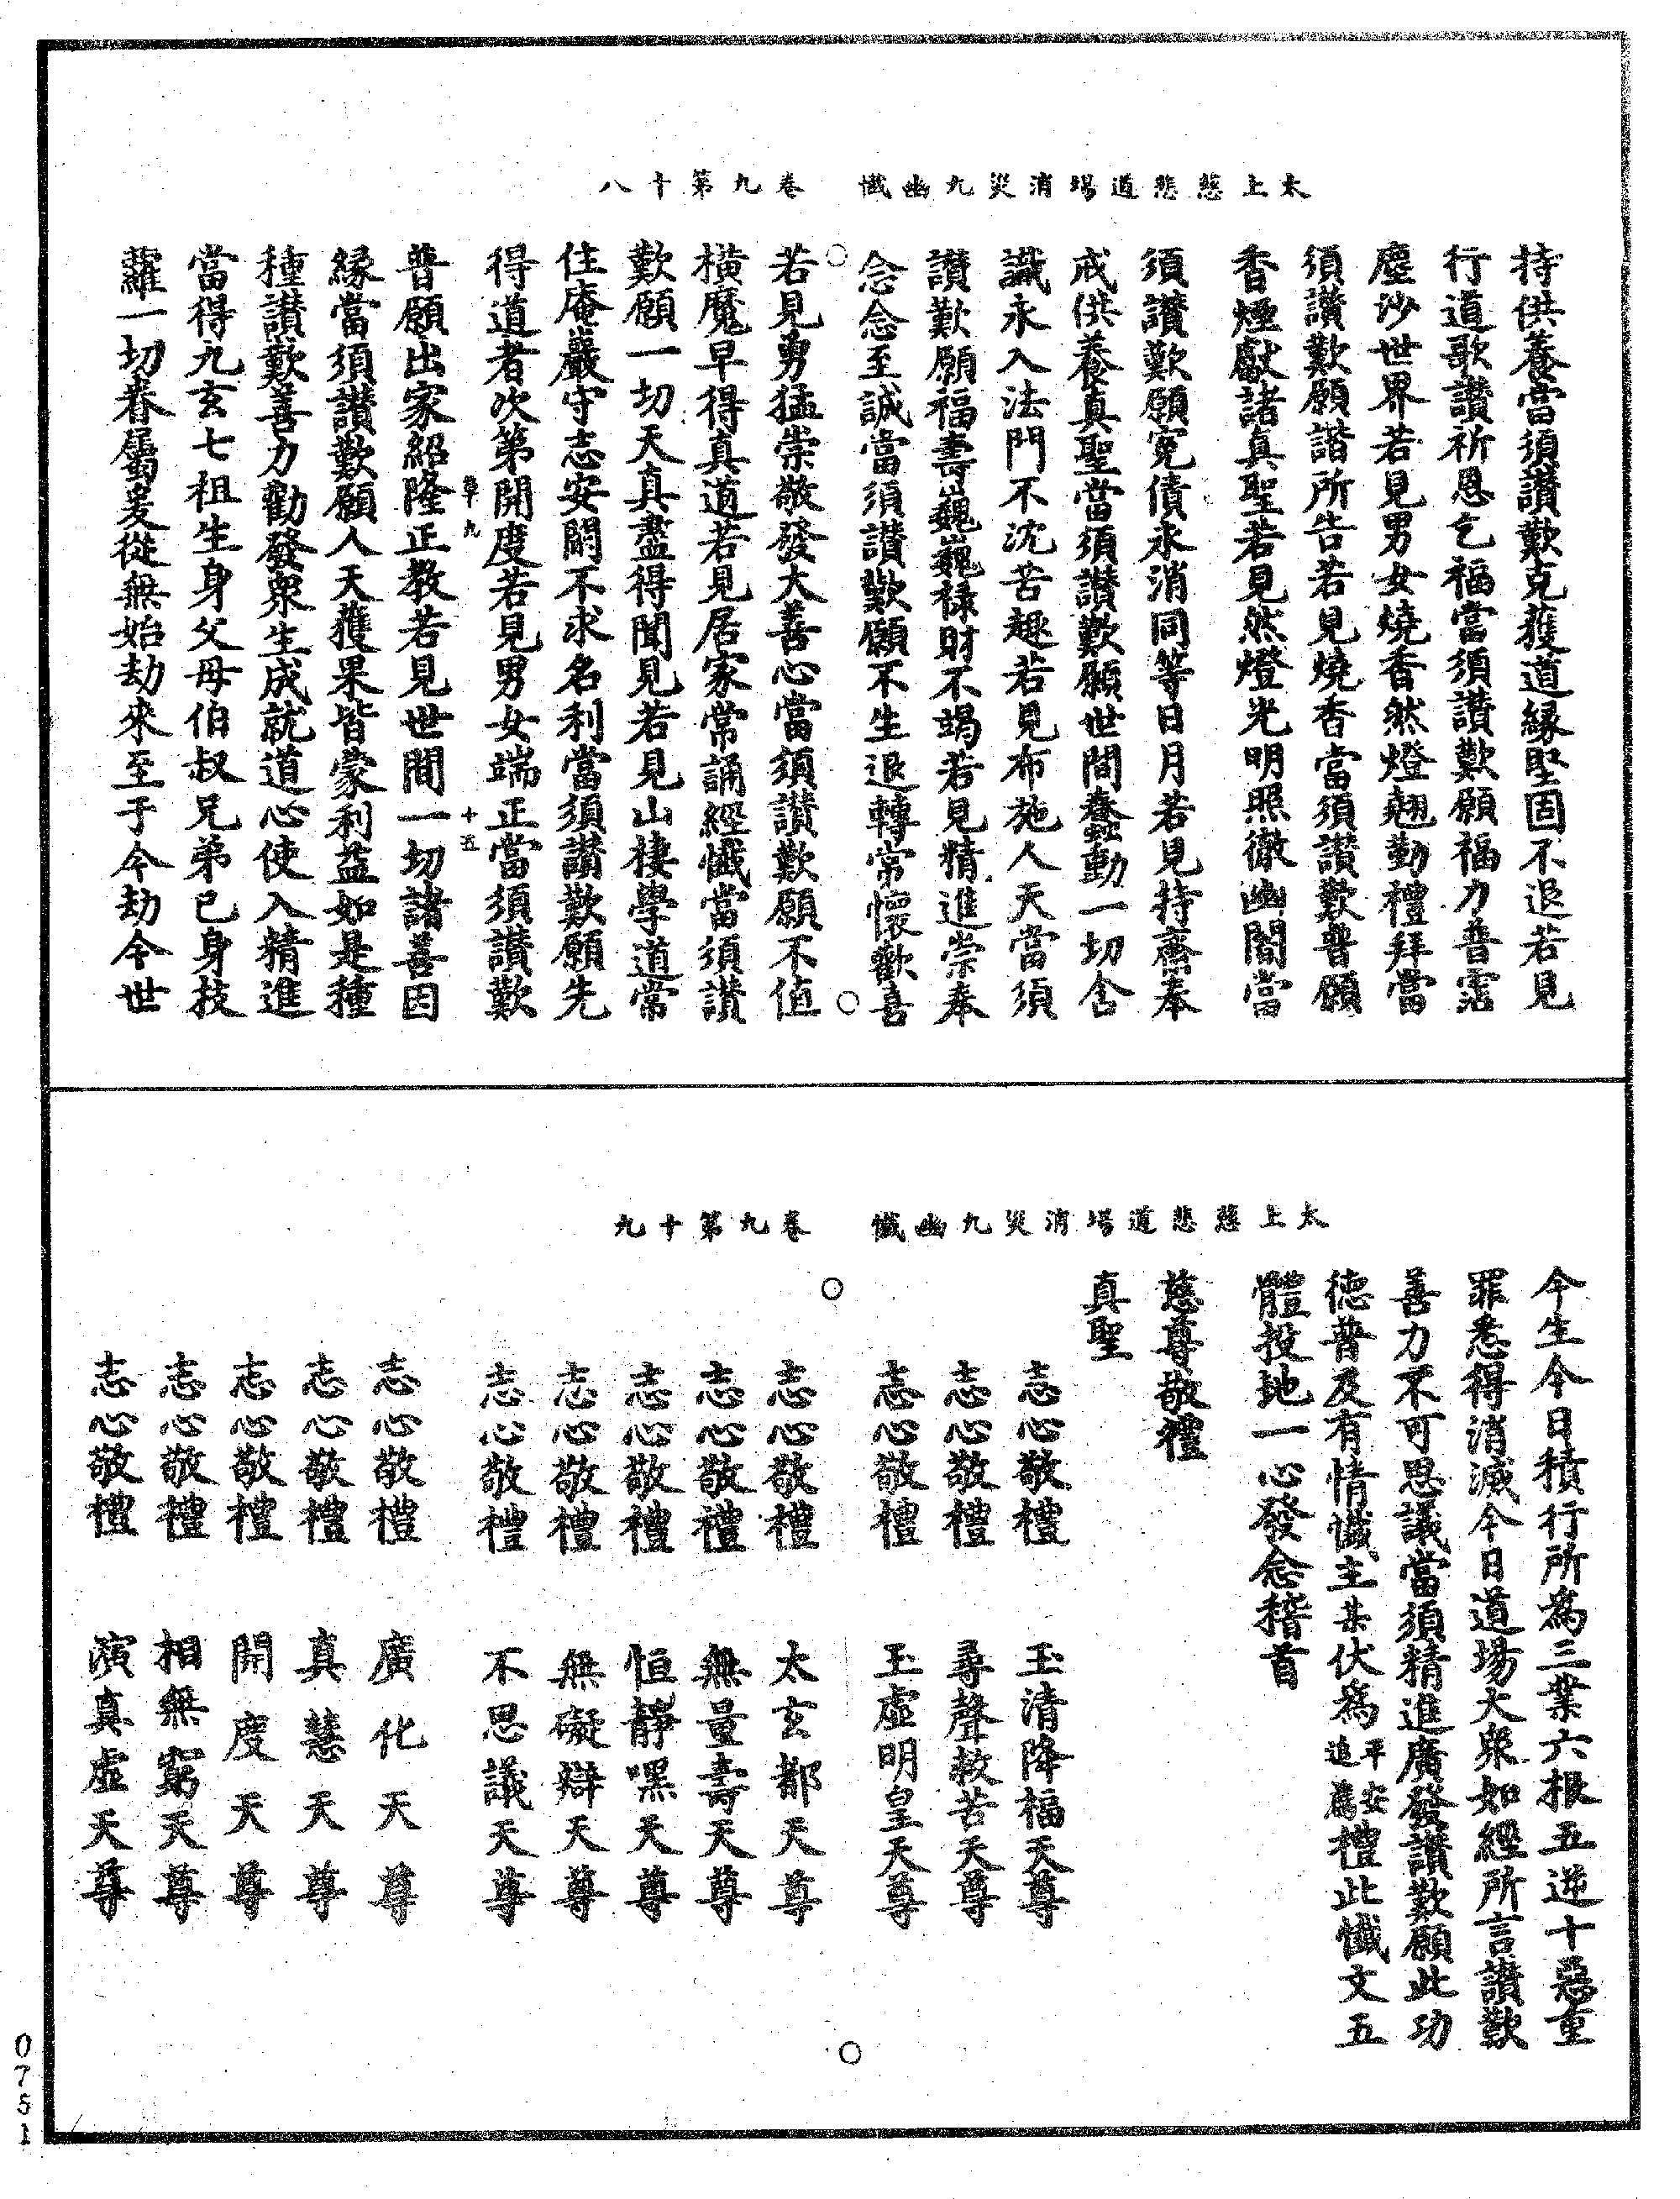 太上慈悲道場消災九幽懺 卷九第十八
持供養當須讃歎克獲道縁堅固不退若見
行道歌讃祈恩乞福當須讃歎願福力普霑
塵沙世界若見男女燒香然燈翹勤禮拜當
須讃歎願諧所告若見燒香當須讃歎普願
香煙獻諸真聖若見然燈光明照徹幽闇當
須讃歎願冤債永消同等日月若見持齋奉
戒供養真聖當須讃歎願世間蠢動一切含
識永入法門不沈苦趣若見布施人天當須
讃歎願福壽巍巍禄財不竭若見精進崇奉
念念至誠當須讃歎願不生退轉常懷歡喜
若見勇猛崇敬發大善心當須讃歎願不值
橫魔早得真道若見居家常誦經懺當須讃
歎願一切天真盡得聞見若見山棲學道常
住庵巖守志安閑不求名利當須讃歎願先
得道者次第開度若見男女端正當須讃歎
十五
普願出家紹隆正教若見世間一切諸善因
縁當須讃歎願人天獲果皆蒙利益如是種
種讃歎善力勸發衆生成就道心使入精進
當得九玄七祖生身父母伯叔兄弟己身枝
蘿一切眷屬爰從無始劫來至于今劫今世
太上慈悲道場消災九幽懺 卷九第十九
今生今日積行所為三業六根五逆十惡重
罪悉得消滅今日道場大衆如經所言讃歎
善力不可思議當須精進廣發讃歎願此功
德普及有情懺主某伏為平安追薦禮此懺文五
體投地一心發念稽首
慈尊敬禮
真聖
志心敬禮 玉清降福天尊
志心敬禮 尋聲救苦天尊
志心敬禮 玉虛明皇天尊
志心敬禮 太玄都天尊
志心敬禮 無量壽天尊
志心敬禮 恒靜嘿天尊
志心敬禮 無礙辯天尊
志心敬禮 不思議天尊
志心敬禮 廣化天尊
志心敬禮 真慧天尊
志心敬禮 開度天尊
志心敬禮 相無窮天尊
志心敬禮 演真虛天尊
0751